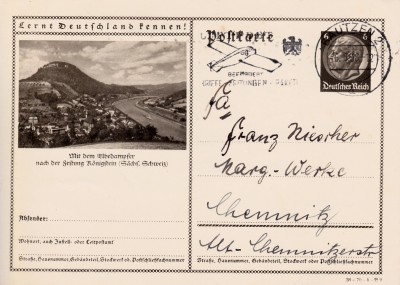 Lernt Deutschland kennen!
Postkarte
6 6
Deutsches Reich
BEFÖRDERT
Mit dem Elbedampfer
nach der Festung Königstein (Sächs. Schweiz)
Fa
Franz
Marg.-Werke
Chemnitz
Alt-Chemnitzerstr
Absender:
Wohnort, auch Zustell- oder Leitpostamt
Straße, Hausnummer, Gebäudeteil, Stockwerk od. Postschließfachnummer
Straße, Hausnummer, Gebäudeteil, Stockwerk oder Postschließfachnummer